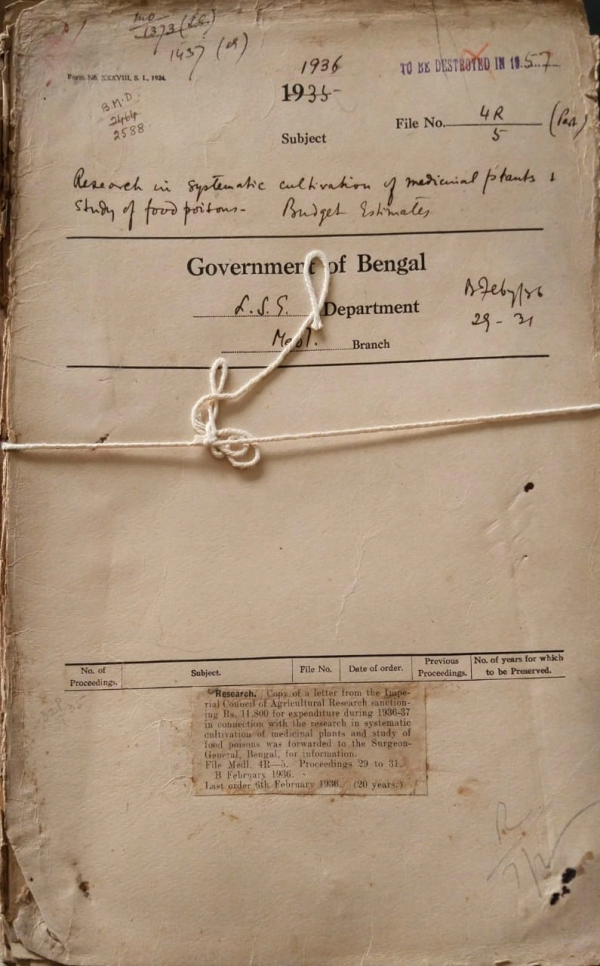 1373 (L.C.)
1437 (LR)
Form No. XXXVIII, S. I., 1924.
B.M.D.
2464
2588
1936
1935
TO BE DESTROYED IN 1957
File No. 4R/5 (Part)
Subject
Research in systematic cultivation of medicinal plants &
Study of food poisons- Budget Estimates
Government of Bengal
L.S.G. Department
Medl. Branch
B Feby/36
29-31
No. of Proceedings.
Subject.
File No.
Date of order.
Previous Proceedings.
No. of years for which to be Preserved.
Research. Copy of a letter from the Impe-
rial Council of Agricultural Research sanction-
ing Rs. 11,800 for expenditure during 1936-37
in connection with the research in systematic
cultivation of medicinal plants and study of
food poisons was forwarded to the Surgeon-
General, Bengal, for information.
File Medl. 4R—5. Proceedings 29 to 31.
B February 1936.
Last order 6th February 1936. (20 years.)